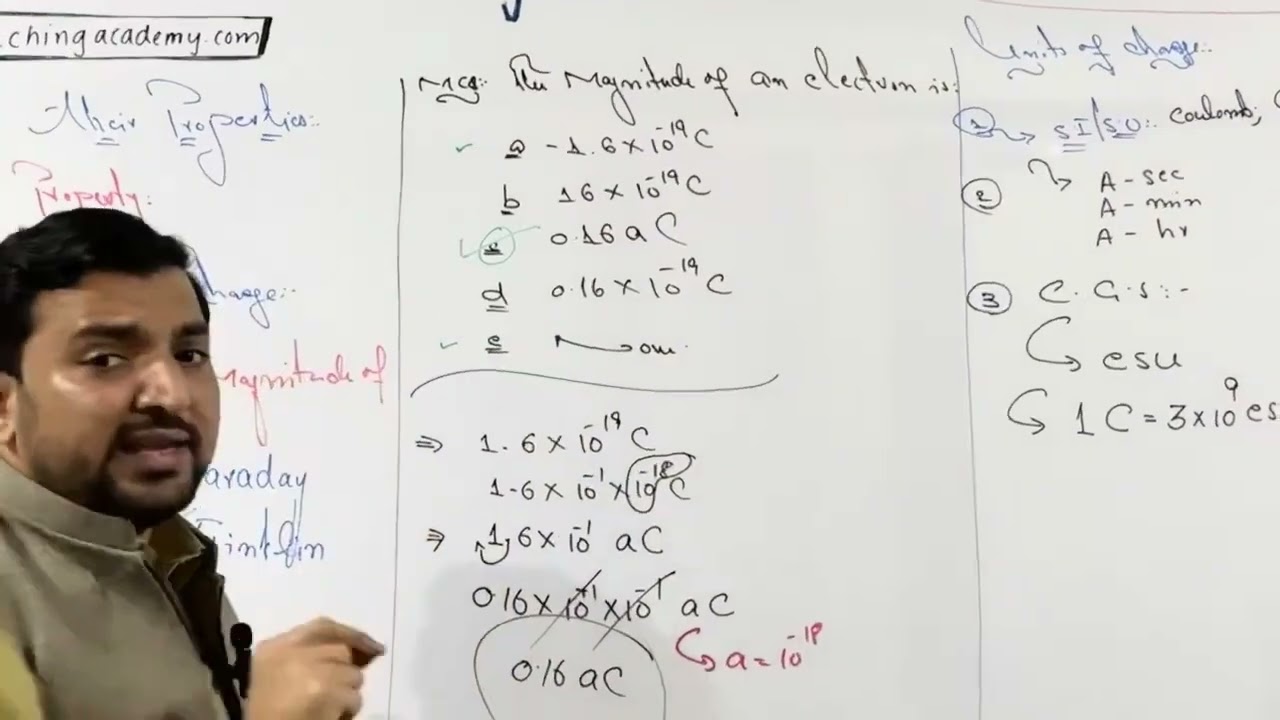 .chingacademy.com
Their Properties:-
Property:
Charge:-
Magnitude of
araday
MCQ: The Magnitude of an electron is:
a -1.6×10⁻¹⁹C
b 16×10⁻¹⁹C
c 0.16 aC
d 0.16×10⁻¹⁹C
e
⇒ 1.6×10⁻¹⁹C
1.6×10⁻¹×10⁻¹⁸C
⇒ 1.6×10⁻¹ aC
0.16×10⁻¹×10⁻¹ aC
a=10⁻¹⁸
0.16 aC
Units of charge:-
1 SI/S.U:. Coulomb;
2 A-sec
A-min
A-hr
3 C.G.S:-
esu
1C=3×10⁹es